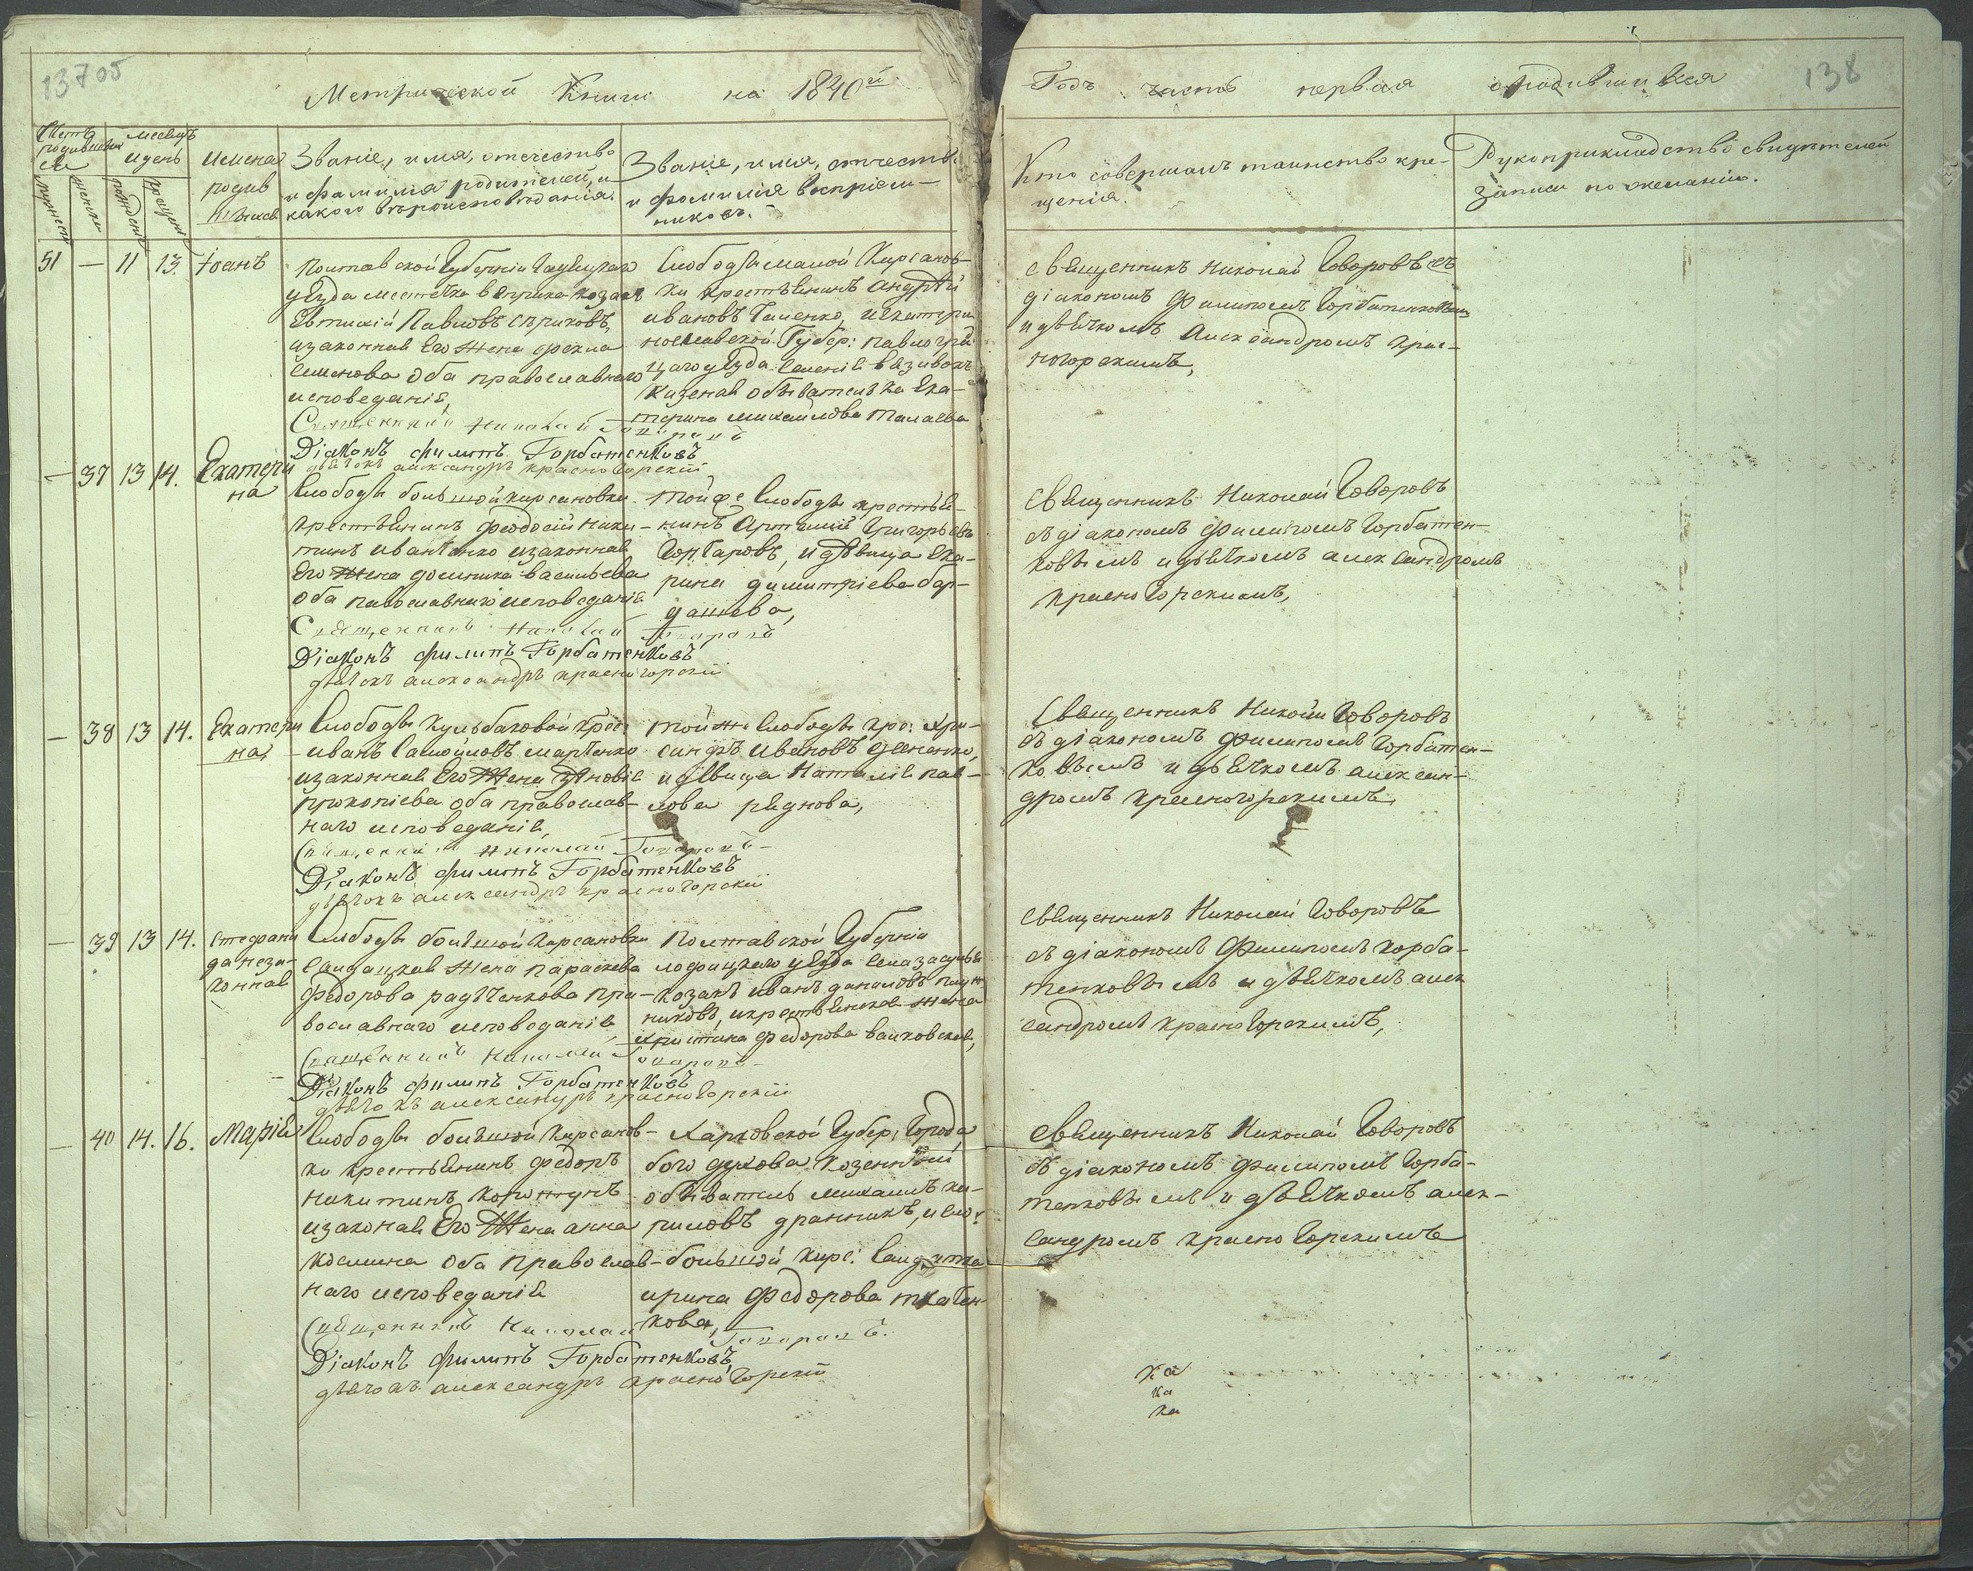 13705
Метрической Книги на 1840й
Годъ часть первая о родившихся
138
Счетъ родившихся
месяцъ и день
Имена родившихся
Званіе, имя, отечество и фамилія родителей, и какого вероисповеданія.
Званіе, имя, отчество и фамилія воспріемниковъ.
Кто совершалъ таинство крещенія.
Рукоприкладство свидетелей записи по желанію.
51 — 11 13. Іоанъ
Полтавской Губерніи
уезда местечка козакъ
Евтихій Павловъ
и законная Его Жена Фекла
Семенова оба православнаго
исповеданія,
Священникъ Николай Говоровъ
Діаконъ Филипъ Горбатенковъ
дьячокъ александръ красногорскій
Слободы малой Кирсанов-
ки крестьянинъ андрей
ивановъ и Екатери
нославской Губер: павлогрд
цкаго уезда
казенная обывателька Ека-
терина михайлова
священникъ Николай Говоровъ съ
діакономъ Филипомъ Горбатенковым
и дьячкомъ Александромъ крас-
ногорскимъ,
— 37 13 14. Екатери
на
Слободы большой кирсановки
крестьянинъ Феодосій ники-
тинъ иваненко и законная
Его Жена домника васильева
оба православнаго исповеданія
Священникъ Николай Говоровъ
Діаконъ Филипъ Горбатенковъ
дьячокъ александръ красногорскій
той же Слободы крестья-
нинъ Артемій Григорьевъ
Гончаровъ, и девица Ека-
рина димитріева бор-
дашева,
священникъ Николай Говоровъ
съ діакономъ Филипомъ Горбатен-
ковымъ и дьячкомъ александромъ
красногорскимъ,
— 38 13 14. Екатери
на
Слободы Кульбаковой крес:
иванъ Самойловъ марченко
и законная Его Жена зиновія
прокопіева оба православ-
наго исповеданія,
Священникъ Николай Говоровъ
Діаконъ Филипъ Горбатенковъ
дьячокъ александръ красногорскій
той же Слободы кре:
ивановъ
и девица Наталія пав-
лова руднова,
Священникъ Николай Говоровъ
съ діакономъ Филипомъ Горбатен-
ковымъ и дьячкомъ алексан-
дромъ красногорскимъ,
— 39 13 14. Стефани
да неза-
конная
Слободы большой кирсановки
Салдацкая Жена параскева
Федорова радченкова пра-
вославнаго исповеданія
Священникъ Николай Говоровъ
Діаконъ Филипъ Горбатенковъ
дьячокъ александръ красногорскій
Полтавской Губерніи
уезда
козакъ иванъ даниловъ
никовъ, и крестьянская жена
христина Федорова
священникъ Николай Говоровъ
съ діакономъ Филипомъ Горба-
тенковымъ и дьячкомъ алек
сандромъ красногорскимъ,
— 40 14. 16. Марія
Слободы большой кирсанов-
ки крестьянинъ Федоръ
никитинъ
и законая Его Жена анна
космина оба Православ-
наго исповеданія
Священникъ Николай Говоровъ
Діаконъ Филипъ Горбатенковъ
дьячокъ александръ красногорскій
Харковской Губер; Города
богодухова козенный
обыватель михаилъ ки-
риловъ дранникъ, и сло:
большой кирс: Салдатка
ирина Федорова ткачен-
кова,
священникъ Николай Говоровъ
съ діакономъ Филипомъ Горба-
тенковымъ и дьячкомъ алек-
сандромъ красногорскимъ
ка
ка
ка
Донские Архивы